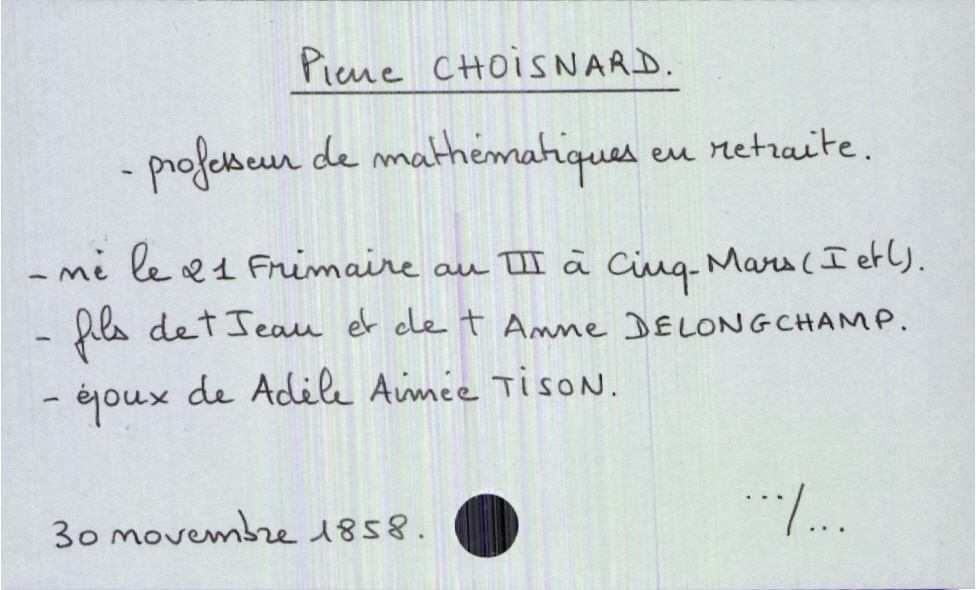 Pierre CHOISNARD.
- professeur de mathématiques en retraite.
- né le 21 Frimaire an III à Cinq-Mars (I et L).
- fils de † Jean et de † Anne DELONGCHAMP.
- époux de Adèle Aimée TISON.
30 novembre 1858.
.../...